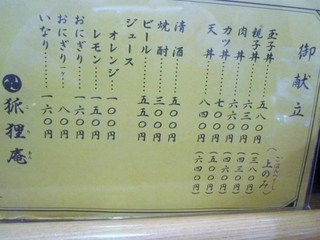 御献立
玉子丼 五八〇円（三八〇円）
親子丼 六三〇円（四三〇円）
肉丼 六六〇円（四六〇円）
カツ丼 七〇〇円（五〇〇円）
天丼 八四〇円（六四〇円）
（上のみ）
清酒 五〇〇円
焼酎 三〇〇円
ビール 五五〇円
ジュース
オレンジ 一〇〇円
レモン 一五〇円
おにぎり 一六〇円
おにぎり 八〇円
いなり 一六〇円
狐狸庵